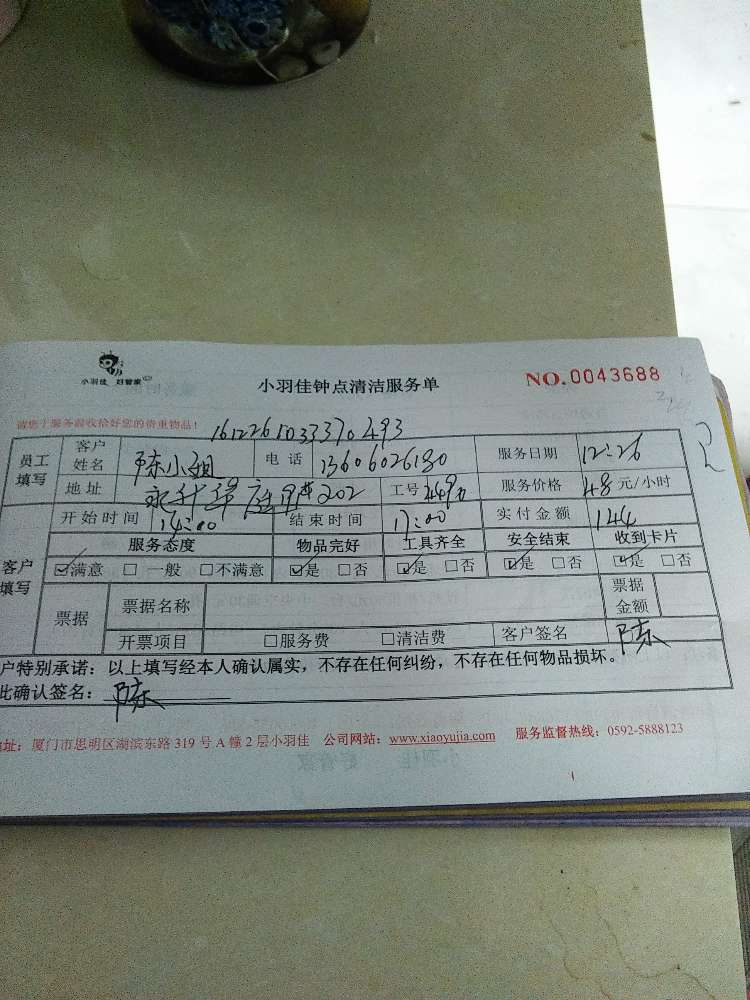 小羽佳 好管家
小羽佳钟点清洁服务单
NO.0043688
请您于服务前收拾好您的贵重物品!
1612261033370493
员工填写 客户姓名 陈小姐 电话 13606026180 服务日期 12:26
地址 202 工号 服务价格 48 元/小时
开始时间 14:00 结束时间 17:00 实付金额 144
客户填写 服务态度 物品完好 工具齐全 安全结束 收到卡片
☑满意 □一般 □不满意 ☑是 □否 ☑是 □否 ☑是 □否 ☑是 □否
票据 票据名称 票据金额
开票项目 □服务费 □清洁费 客户签名 陈
户特别承诺:以上填写经本人确认属实,不存在任何纠纷,不存在任何物品损坏。
此确认签名:陈
地址:厦门市思明区湖滨东路 319 号 A 幢 2 层小羽佳 公司网站:www.xiaoyujia.com 服务监督热线:0592-5888123